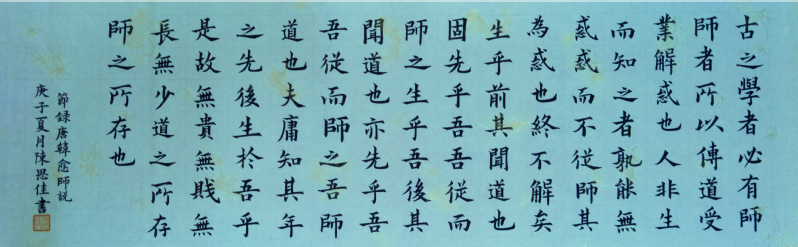 古之學者必有師
師者所以傳道受
業解惑也人非生
而知之者孰能無
惑惑而不從師其
為惑也終不解矣
生乎前其聞道也
固先乎吾吾從而
師之生乎吾後其
聞道也亦先乎吾
吾從而師之吾師
道也夫庸知其年
之先後生於吾乎
是故無貴無賤無
長無少道之所存
師之所存也
節錄唐韓愈師説
庚子夏月陳思佳書